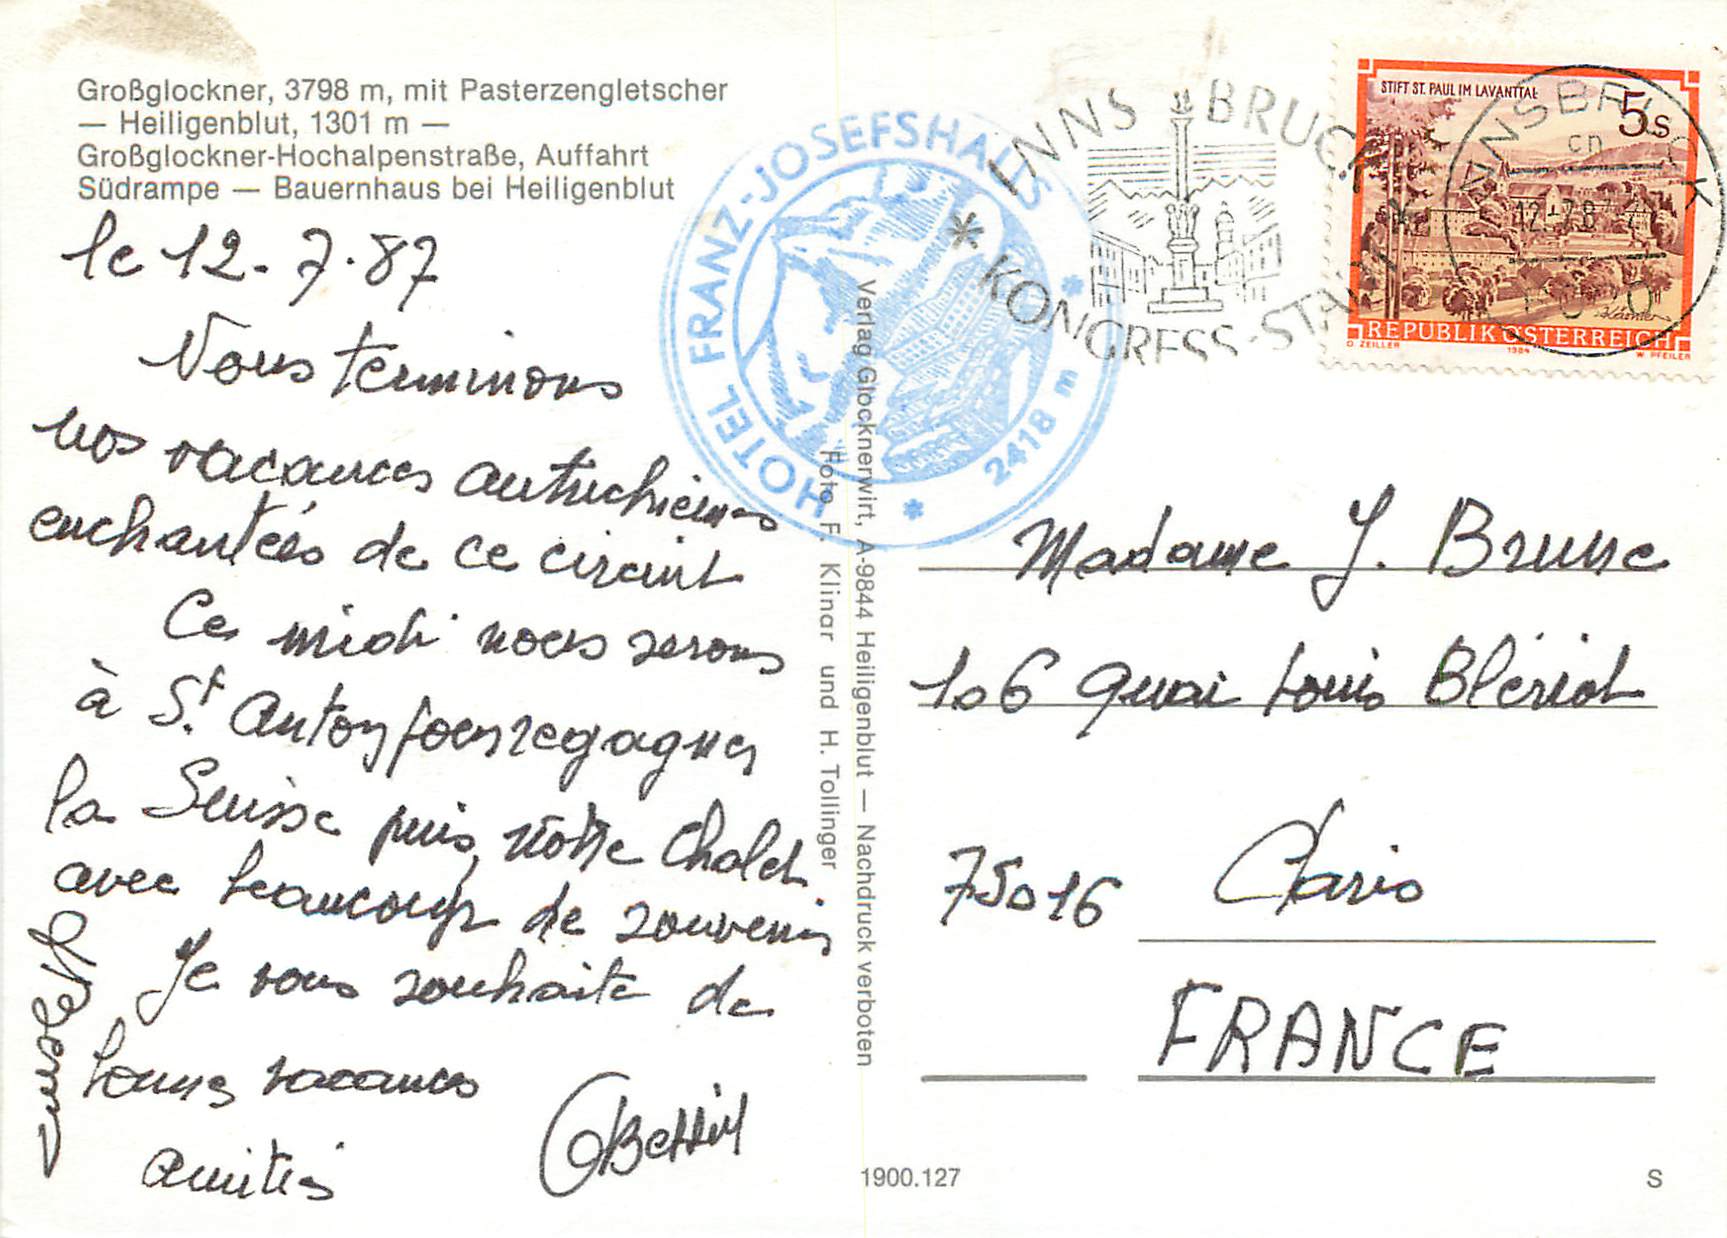 Großglockner, 3798 m, mit Pasterzengletscher
— Heiligenblut, 1301 m —
Großglockner-Hochalpenstraße, Auffahrt
Südrampe — Bauernhaus bei Heiligenblut
le 12.7.87
Nous terminons
nos vacances autrichiennes
enchantées de ce circuit
Ce midi nous serons
à St Anton pour regagner
la Suisse puis notre chalet
avec beaucoup de souvenirs
Je vous souhaite de
bonnes vacances
Amitiés
HOTEL FRANZ-JOSEFSHAUS
* 2418 m *
Verlag Glocknerwirt, A-9844 Heiligenblut — Nachdruck verboten
Foto F. Klinar und H. Tollinger
INNSBRUCK
* KONGRESS-STADT *
STIFT ST. PAUL IM LAVANTTAL
5s
REPUBLIK ÖSTERREICH
O. ZEILLER 1984 W. PFEILER
INNSBRUCK
12.-7.87
6020
Madame J. Brune
106 Quai Louis Blériot
75016 Paris
FRANCE
1900.127
S